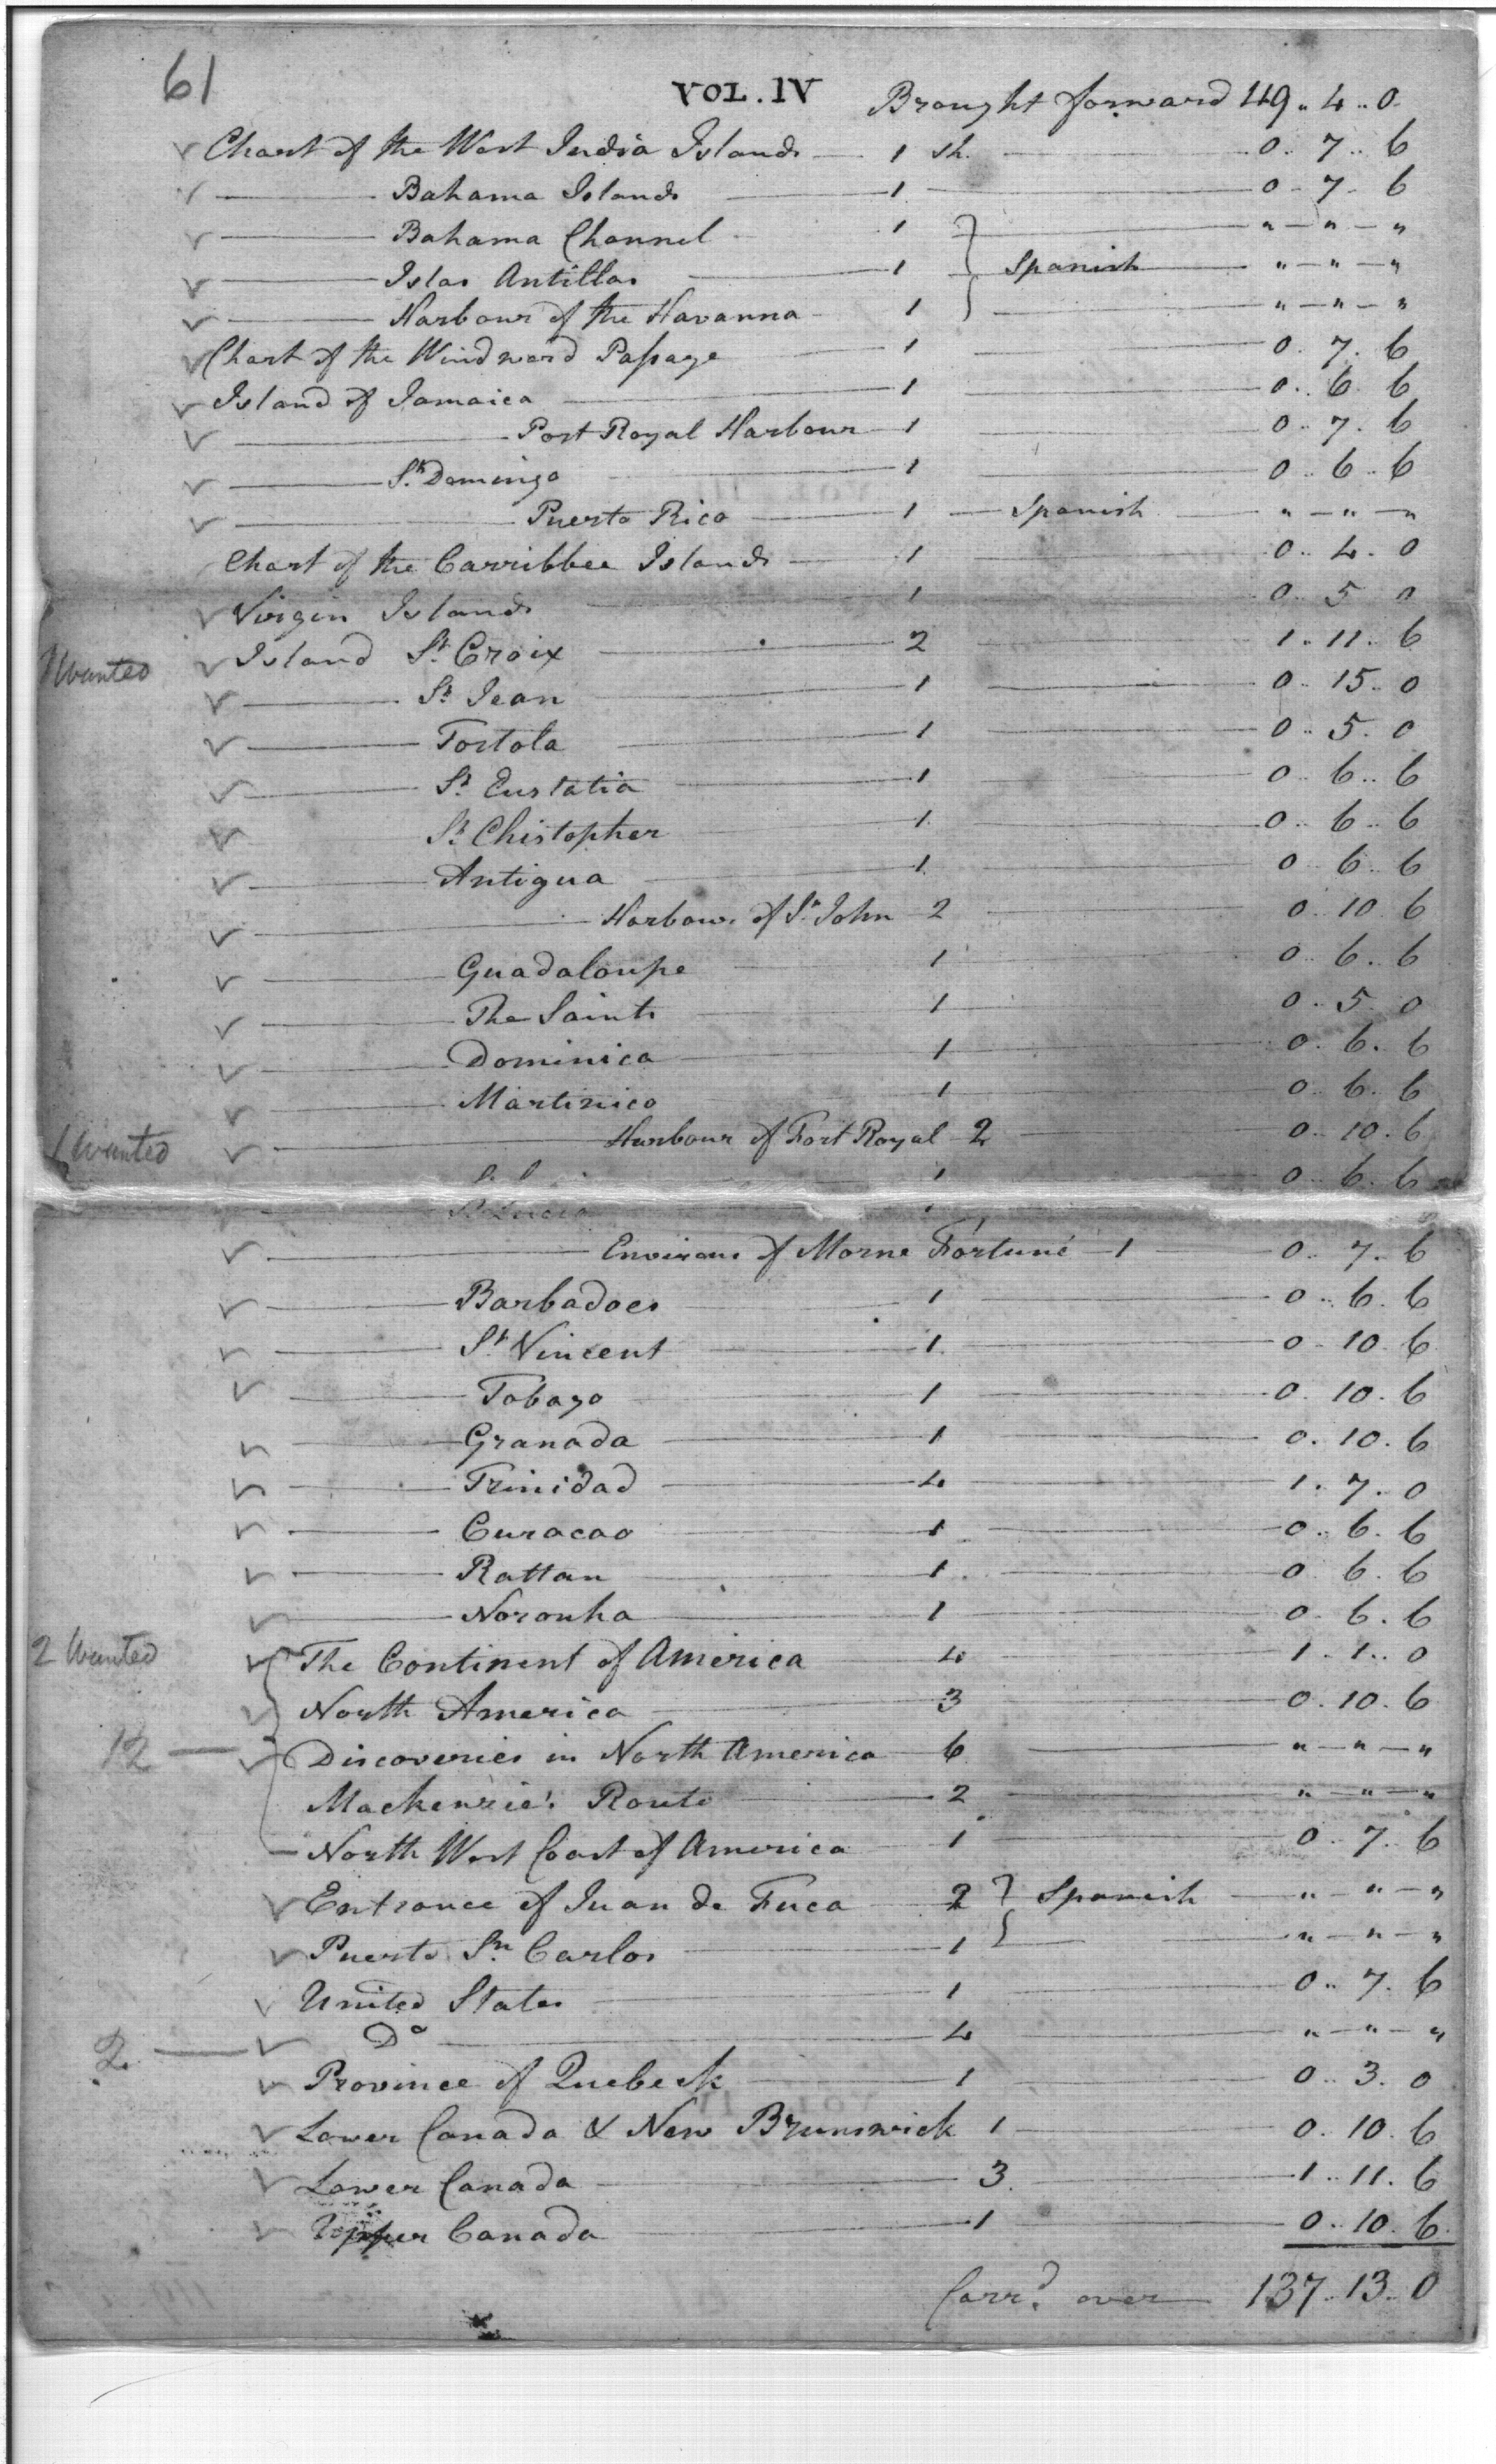 61
VOL. IV
Brought forward 119 .. 4 .. 0
✓ Chart of the West India Islands — 1 sh. — 0 .. 7 .. 6
✓ — Bahama Islands — 1 — 0 .. 7 .. 6
✓ — Bahama Channel — 1 } — " — " — "
✓ — Islas Antillas — 1 } Spanish — " — " — "
✓ — Harbour of the Havanna — 1 } — " — " — "
✓ Chart of the Windward Passage — 1 — 0 .. 7 .. 6
✓ Island of Jamaica — 1 — 0 .. 6 .. 6
✓ — Port Royal Harbour — 1 — 0 .. 7 . 6
✓ — St. Domingo — 1 — 0 .. 6 .. 6
✓ — Puerto Rico — 1 — Spanish — " — " — "
Chart of the Carribbee Islands — 1 — 0 .. 4 . 0
✓ Virgin Islands — 1 — 0 .. 5 .. 0
1 Wanted ✓ Island St. Croix — 2 — 1 .. 11 .. 6
✓ — St. Jean — 1 — 0 .. 15 .. 0
✓ — Tortola — 1 — 0 .. 5 . 0
✓ — St. Eustatia — 1 — 0 .. 6 .. 6
✓ — St. Chistopher — 1 — 0 .. 6 .. 6
✓ — Antigua — 1 — 0 .. 6 .. 6
✓ — Harbour of St. John 2 — 0 .. 10 . 6
✓ — Guadaloupe — 1 — 0 .. 6 .. 6
✓ — The Saints — 1 — 0 .. 5 . 0
✓ — Dominica — 1 — 0 .. 6 . 6
✓ — Martinico — 1 — 0 .. 6 . 6
1 Wanted ✓ — Harbour of Fort Royal 2 — 0 .. 10 . 6
— St. Lucia — 1 — 0 .. 6 . 6
✓ — Environs of Morne Fortuné — 1 — 0 .. 7 . 6
✓ — Barbadoes — 1 — 0 .. 6 . 6
✓ — St. Vincent — 1 — 0 .. 10 . 6
✓ — Tobago — 1 — 0 . 10 . 6
✓ — Granada — 1 — 0 . 10 . 6
✓ — Trinidad — 4 — 1 . 7 . 0
✓ — Curacao — 1 — 0 .. 6 . 6
✓ — Rattan — 1 — 0 .. 6 . 6
✓ — Noronha — 1 — 0 .. 6 . 6
2 Wanted ✓ The Continent of America — 4 — 1 . 1 .. 0
✓ North America — 3 — 0 . 10 . 6
12 — ✓ Discoveries in North America 6 — " — " — "
Mackenzie's Route — 2 — " — " — "
— North West Coast of America — 1 — 0 .. 7 . 6
✓ Entrance of Juan de Fuca — 2 } Spanish — " — " — "
✓ Puerto Sn. Carlos — 1 } — " — " — "
✓ United States — 1 — 0 .. 7 . 6
2 — ✓ Do — 4 — " — " — "
✓ Province of Quebeck — 1 — 0 .. 3 . 0
✓ Lower Canada & New Brunswick 1 — 0 . 10 . 6
✓ Lower Canada — 3 — 1 .. 11 . 6
✓ Upper Canada — 1 — 0 .. 10 . 6
Carrd. over — 137 .. 13 .. 0